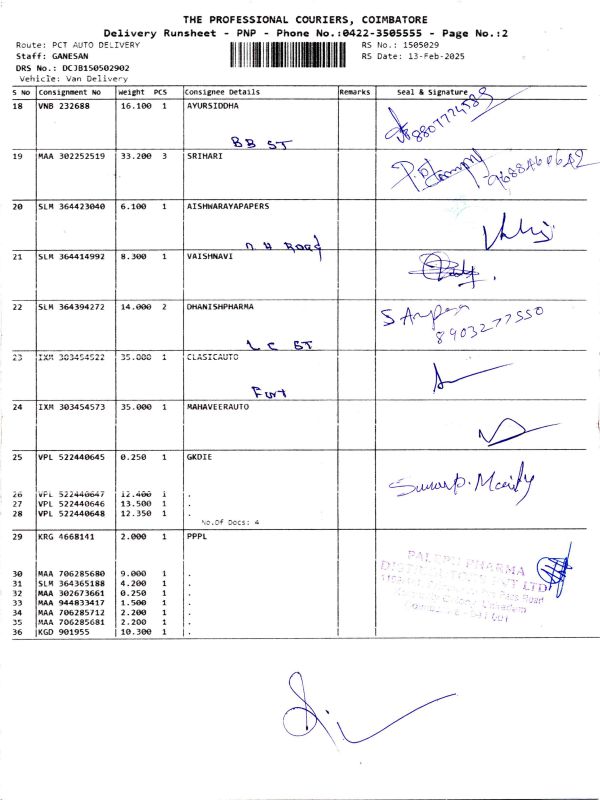 THE PROFESSIONAL COURIERS, COIMBATORE
Delivery Runsheet - PNP - Phone No.:0422-3505555 - Page No.:2
Route: PCT AUTO DELIVERY RS No.: 1505029
Staff: GANESAN RS Date: 13-Feb-2025
DRS No.: DCJB150502902
Vehicle: Van Delivery
S No Consignment No Weight PCS Consignee Details Remarks Seal & Signature
18 VNB 232688 16.100 1 AYURSIDDHA
8807774589
BB ST
19 MAA 302252519 33.200 3 SRIHARI
9688460642
20 SLM 364423040 6.100 1 AISHWARAYAPAPERS
N H Road
21 SLM 364414992 8.300 1 VAISHNAVI
22 SLM 364394272 14.000 2 DHANISHPHARMA
8903277550
L C ST
23 IXM 303454522 35.000 1 CLASICAUTO
Fort
24 IXM 303454573 35.000 1 MAHAVEERAUTO
25 VPL 522440645 0.250 1 GKDIE
26 VPL 522440647 12.400 1 .
27 VPL 522440646 13.500 1 .
28 VPL 522440648 12.350 1 .
No.Of Docs: 4
29 KRG 4668141 2.000 1 PPPL
PALEPU PHARMA
DISTRIBUTORS PVT LTD
30 MAA 706285680 9.000 1 .
31 SLM 364365188 4.200 1 .
32 MAA 302673661 0.250 1 .
33 MAA 944833417 1.500 1 .
34 MAA 706285712 2.200 1 .
35 MAA 706285681 2.200 1 .
36 KGD 901955 10.300 1 .